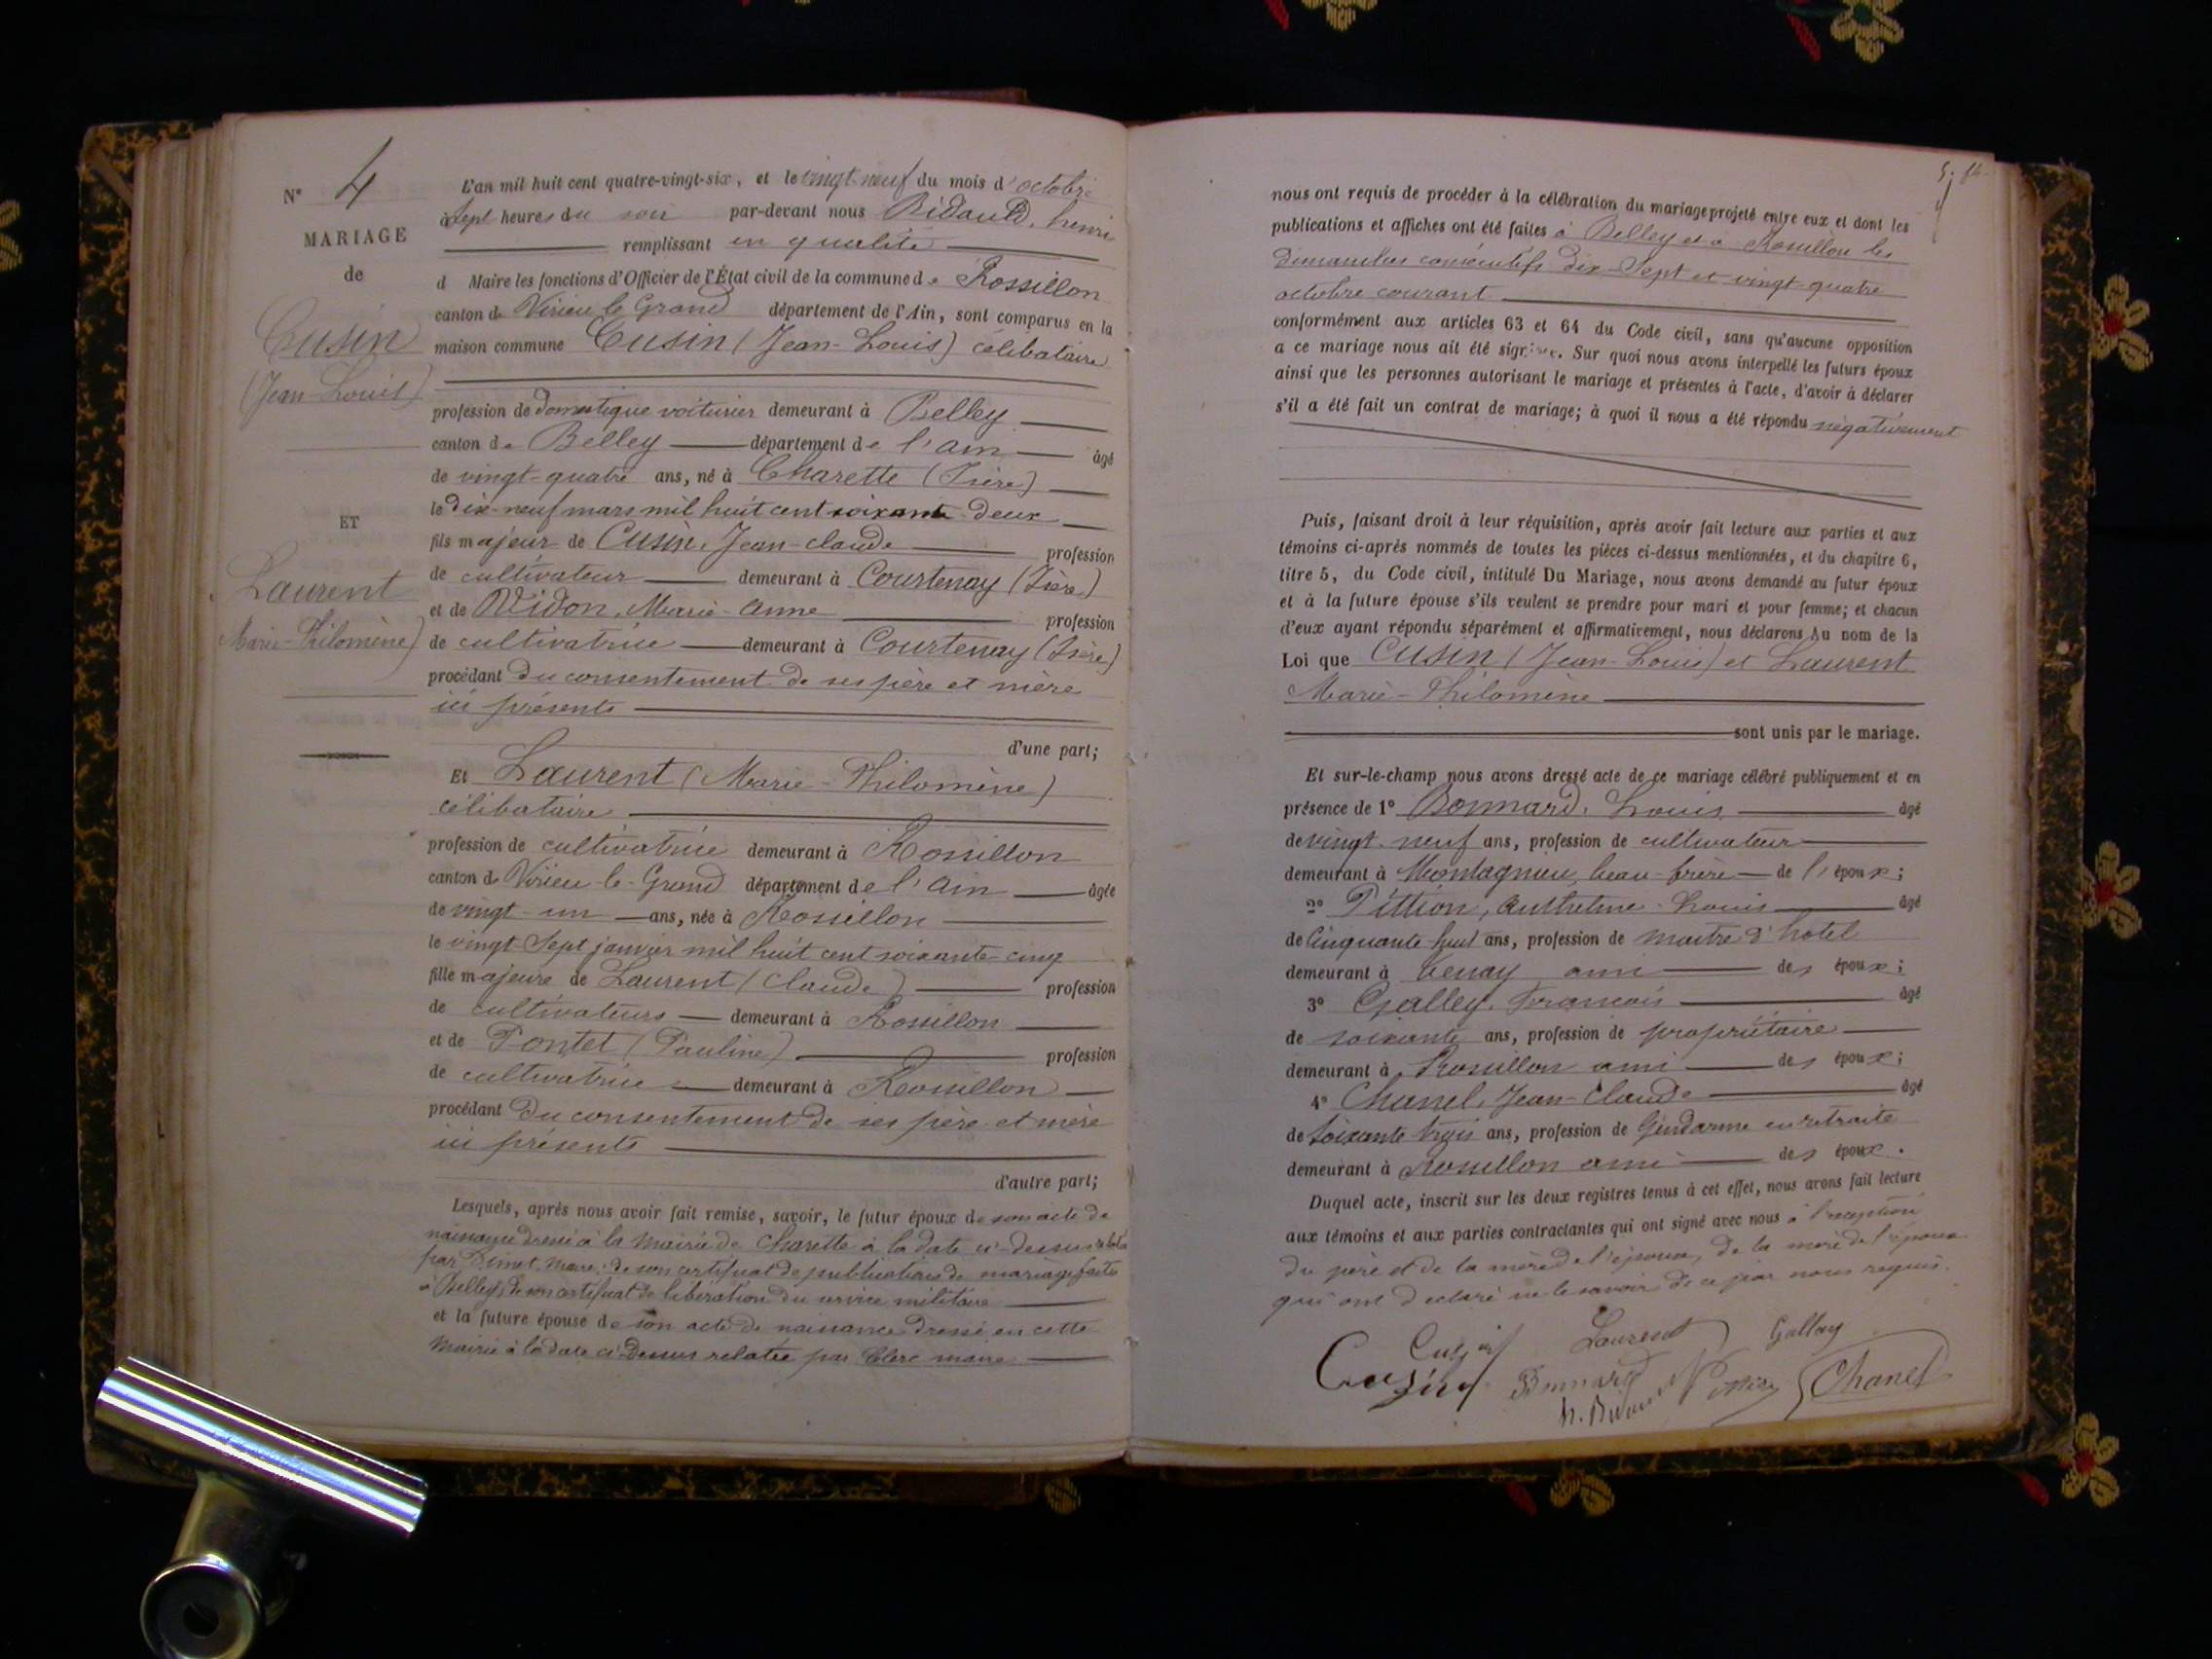 N° 4
MARIAGE
de
Cusin
(Jean-Louis)
ET
Laurent
Marie-Philomène)
L'an mil huit cent quatre-vingt-six, et le vingt-neuf du mois d'octobre
à Sept heures du soir par-devant nous Bidaud, henri
remplissant en qualité
d Maire les fonctions d'Officier de l'État civil de la commune de Rossillon
canton de Virieu le Grand département de l'Ain, sont comparus en la
maison commune Cusin (Jean-Louis) célibataire
profession de domestique voiturier demeurant à Belley
canton de Belley département de l'ain âgé
de vingt-quatre ans, né à Charette (Isère)
le dix-neuf mars mil huit cent soixante-deux
fils majeur de Cusin, Jean-claude profession
de cultivateur demeurant à Courtenay (Isère)
et de Vidon, Marie-Anne profession
de cultivatrice demeurant à Courtenay (Isère)
procédant du consentement de ses père et mère
ici présents
d'une part;
Et Laurent (Marie-Philomène)
célibataire
profession de cultivatrice demeurant à Rossillon
canton de Virieu-le-Grand département de l'Ain âgée
de vingt-un ans, née à Rossillon
le vingt-Sept janvier mil huit cent soixante-cinq
fille majeure de Laurent (Claude) profession
de cultivateurs demeurant à Rossillon
et de Pontet (Pauline) profession
de cultivatrice demeurant à Rossillon
procédant du consentement de ses père et mère
ici présents
d'autre part;
Lesquels, après nous avoir fait remise, savoir, le futur époux de son acte de
naissance dressé à la Mairie de Charette à la date ci-dessus
par maire; de son certificat de publications de mariage faites
à Belley, de son certificat de libération du service militaire
et la future épouse de son acte de naissance dressé en cette
Mairie à la date ci-Dessus relatée par Clerc maire
nous ont requis de procéder à la célébration du mariage projeté entre eux et dont les
publications et affiches ont été faites à Belley et à Rossillon les
dimanches consécutifs dix-Sept et vingt-quatre
octobre courant
conformément aux articles 63 et 64 du Code civil, sans qu'aucune opposition
a ce mariage nous ait été signifiée. Sur quoi nous avons interpellé les futurs époux
ainsi que les personnes autorisant le mariage et présentes à l'acte, d'avoir à déclarer
s'il a été fait un contrat de mariage; à quoi il nous a été répondu négativement
Puis, faisant droit à leur réquisition, après avoir fait lecture aux parties et aux
témoins ci-après nommés de toutes les pièces ci-dessus mentionnées, et du chapitre 6,
titre 5, du Code civil, intitulé Du Mariage, nous avons demandé au futur époux
et à la future épouse s'ils veulent se prendre pour mari et pour femme; et chacun
d'eux ayant répondu séparément et affirmativement, nous déclarons Au nom de la
Loi que Cusin (Jean-Louis) et Laurent
Marie-Philomène
sont unis par le mariage.
Et sur-le-champ nous avons dressé acte de ce mariage célébré publiquement et en
présence de 1° Bonnard, Louis âgé
de vingt-neuf ans, profession de cultivateur
demeurant à Montagnieu, beau-frère de l'époux;
2° Pittion, Louis âgé
de Cinquante huit ans, profession de maitre d'hotel
demeurant à tenay ami des époux;
3° Galley, François âgé
de soixante ans, profession de propriétaire
demeurant à Rossillon ami des époux;
4° Chanel, Jean-Claude âgé
de soixante trois ans, profession de Gendarme en retraite
demeurant à Rossillon ami des époux.
Duquel acte, inscrit sur les deux registres tenus à cet effet, nous avons fait lecture
aux témoins et aux parties contractantes qui ont signé avec nous à l'exception
du père et de la mère de l'époux, de la mère de l'épouse
qui ont déclaré ne le savoir de ce par nous requis.
Cusin Laurent Gallay
Cusin Bonnard Pittion Chanel
H. Bidaud